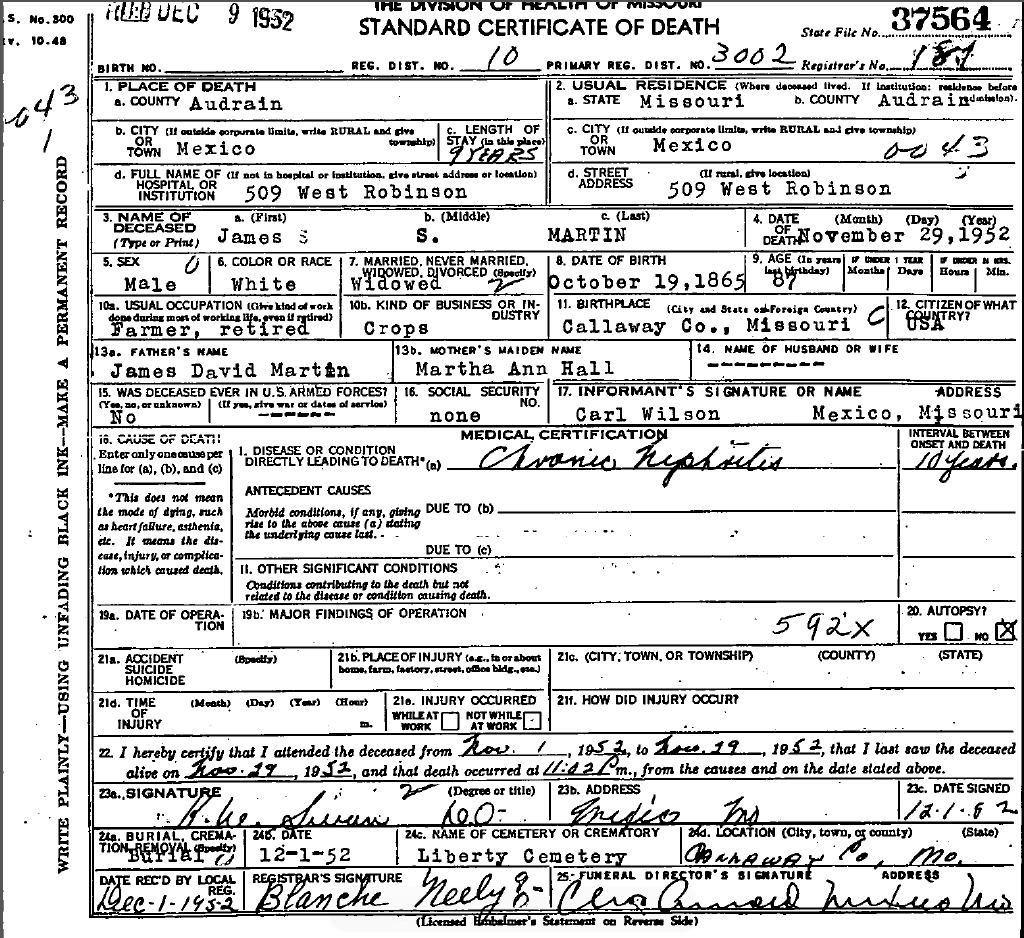 S. No.300
v. 10.48
FILED DEC 9 1952
THE DIVISION OF HEALTH OF MISSOURI
STANDARD CERTIFICATE OF DEATH
State File No. 37564
BIRTH NO. REG. DIST. NO. 10 PRIMARY REG. DIST. NO. 3002 Registrar's No. 187
043
1
WRITE PLAINLY—USING UNFADING BLACK INK—MAKE A PERMANENT RECORD
1. PLACE OF DEATH
a. COUNTY Audrain
2. USUAL RESIDENCE (Where deceased lived. If institution: residence before admission).
a. STATE Missouri b. COUNTY Audrain
b. CITY (If outside corporate limits, write RURAL and give township)
OR
TOWN Mexico
c. LENGTH OF
STAY (in this place)
9 YEARS
c. CITY (If outside corporate limits, write RURAL and give township)
OR
TOWN Mexico 0043
d. FULL NAME OF (If not in hospital or institution, give street address or location)
HOSPITAL OR
INSTITUTION 509 West Robinson
d. STREET (If rural, give location)
ADDRESS 509 West Robinson
3. NAME OF
DECEASED
(Type or Print)
a. (First) b. (Middle) c. (Last)
James S S. MARTIN
4. DATE (Month) (Day) (Year)
OF
DEATH November 29,1952
5. SEX 0
Male
6. COLOR OR RACE
White
7. MARRIED, NEVER MARRIED,
WIDOWED, DIVORCED (Specify)
Widowed 2
8. DATE OF BIRTH
October 19,1865
9. AGE (In years
last birthday)
87
IF UNDER 1 YEAR
Months Days
IF UNDER 24 HRS.
Hours Min.
10a. USUAL OCCUPATION (Give kind of work
done during most of working life, even if retired)
Farmer, retired
10b. KIND OF BUSINESS OR IN-
DUSTRY
Crops
11. BIRTHPLACE (City and State or Foreign Country)
Callaway Co., Missouri
12. CITIZEN OF WHAT
COUNTRY?
USA
13a. FATHER'S NAME
James David Martin
13b. MOTHER'S MAIDEN NAME
Martha Ann Hall
14. NAME OF HUSBAND OR WIFE
--------
15. WAS DECEASED EVER IN U.S. ARMED FORCES?
(Yes, no, or unknown) (If yes, give war or dates of service)
No -----
16. SOCIAL SECURITY
NO.
none
17. INFORMANT'S SIGNATURE OR NAME ADDRESS
Carl Wilson Mexico, Missouri
18. CAUSE OF DEATH
Enter only one cause per
line for (a), (b), and (c)
*This does not mean
the mode of dying, such
as heart failure, asthenia,
etc. It means the dis-
ease, injury, or complica-
tion which caused death.
MEDICAL CERTIFICATION
I. DISEASE OR CONDITION
DIRECTLY LEADING TO DEATH*(a) Chronic Nephritis
INTERVAL BETWEEN
ONSET AND DEATH
10 Years.
ANTECEDENT CAUSES
Morbid conditions, if any, giving
rise to the above cause (a) stating
the underlying cause last.
DUE TO (b)
DUE TO (c)
II. OTHER SIGNIFICANT CONDITIONS
Conditions contributing to the death but not
related to the disease or condition causing death.
19a. DATE OF OPERA-
TION
19b. MAJOR FINDINGS OF OPERATION
592X
20. AUTOPSY?
YES NO X
21a. ACCIDENT (Specify)
SUICIDE
HOMICIDE
21b. PLACE OF INJURY (e.g., in or about
home, farm, factory, street, office bldg., etc.)
21c. (CITY, TOWN, OR TOWNSHIP) (COUNTY) (STATE)
21d. TIME (Month) (Day) (Year) (Hour)
OF
INJURY m.
21e. INJURY OCCURRED
WHILE AT WORK NOT WHILE AT WORK
21f. HOW DID INJURY OCCUR?
22. I hereby certify that I attended the deceased from Nov. 1, 1952, to Nov. 29, 1952, that I last saw the deceased
alive on Nov. 29, 1952, and that death occurred at 11:02 P m., from the causes and on the date stated above.
23a. SIGNATURE (Degree or title)
D.O.
23b. ADDRESS
Mexico Mo
23c. DATE SIGNED
12-1-52
24a. BURIAL, CREMA-
TION, REMOVAL (Specify)
Burial
24b. DATE
12-1-52
24c. NAME OF CEMETERY OR CREMATORY
Liberty Cemetery
24d. LOCATION (City, town, or county) (State)
Callaway Co, Mo.
DATE REC'D BY LOCAL
REG.
Dec-1-1952
REGISTRAR'S SIGNATURE
Blanche Neely
25. FUNERAL DIRECTOR'S SIGNATURE ADDRESS
Arnold Mexico Mo
(Licensed Embalmer's Statement on Reverse Side)